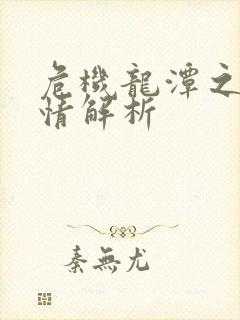 危機龍潭之
情解析
秦無尤